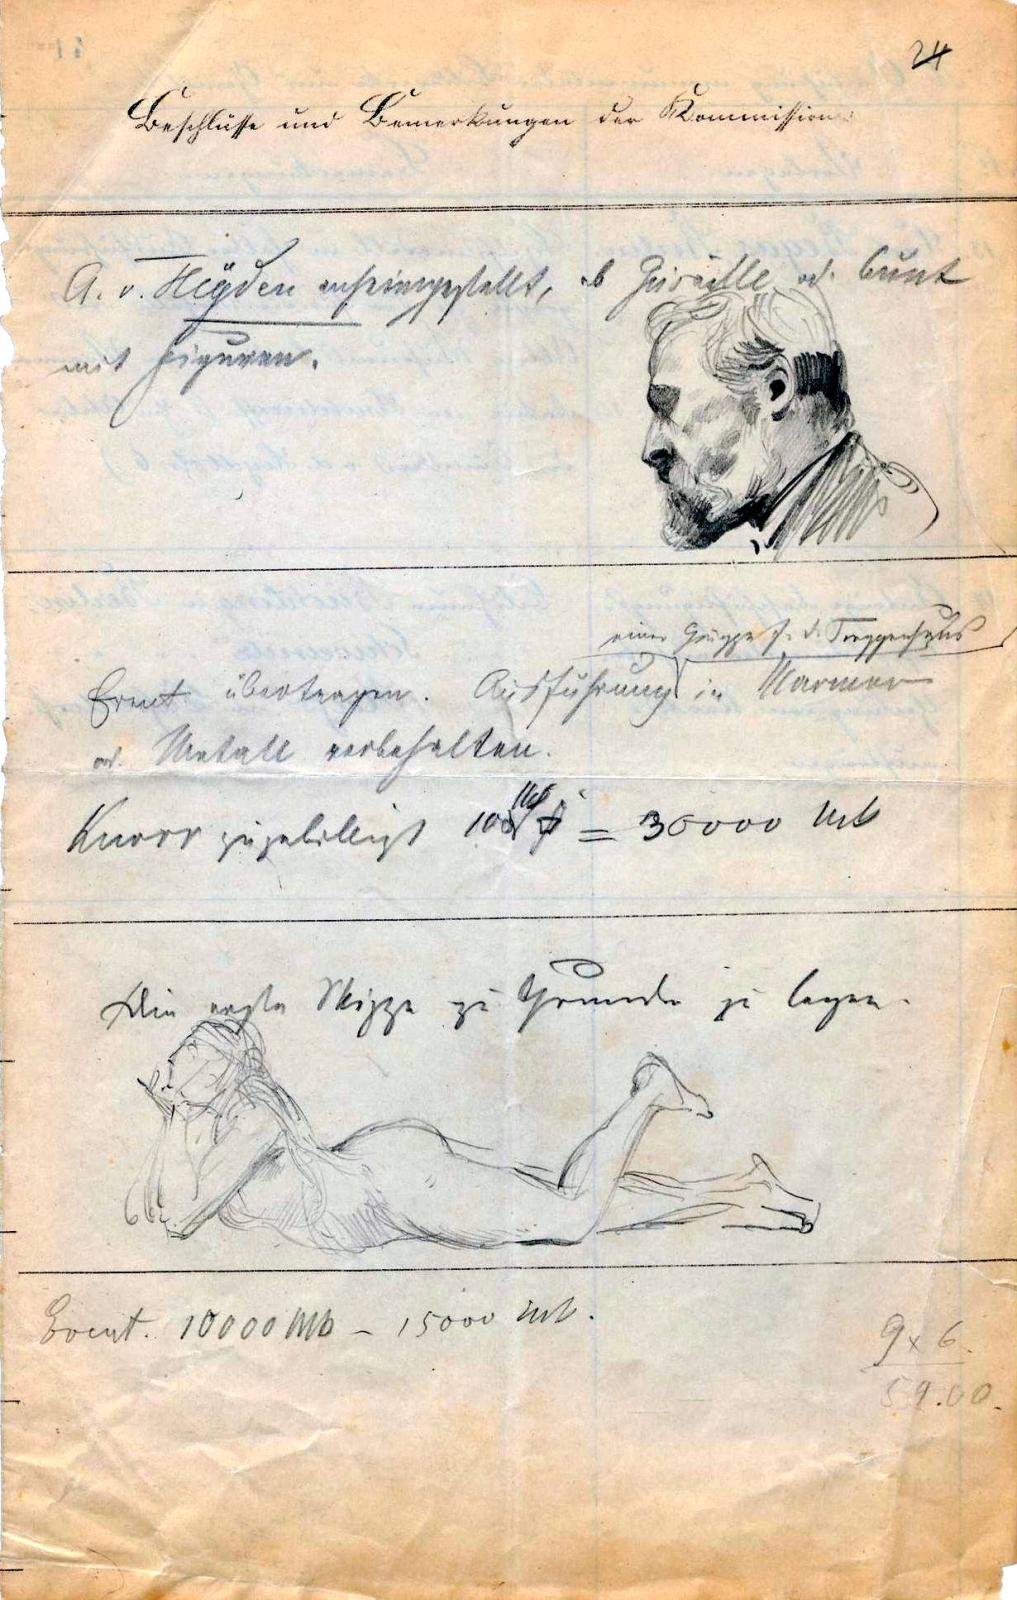 24
Beschlüsse und Bemerkungen der Kommission
A. v. Heyden anheimgestellt, ob Grisaille od. bunt
mit Figuren.
einer Gruppe f. d. Treppenhaus
Ernst übertragen. Ausführung in Marmor
od. Metall vorbehalten.
Knorr zugebilligt = 30000 Mk
Die erste Skizze zu Grunde zu legen.
Event. 10000 Mk – 15000 Mk.
9 x 6.
59.00.